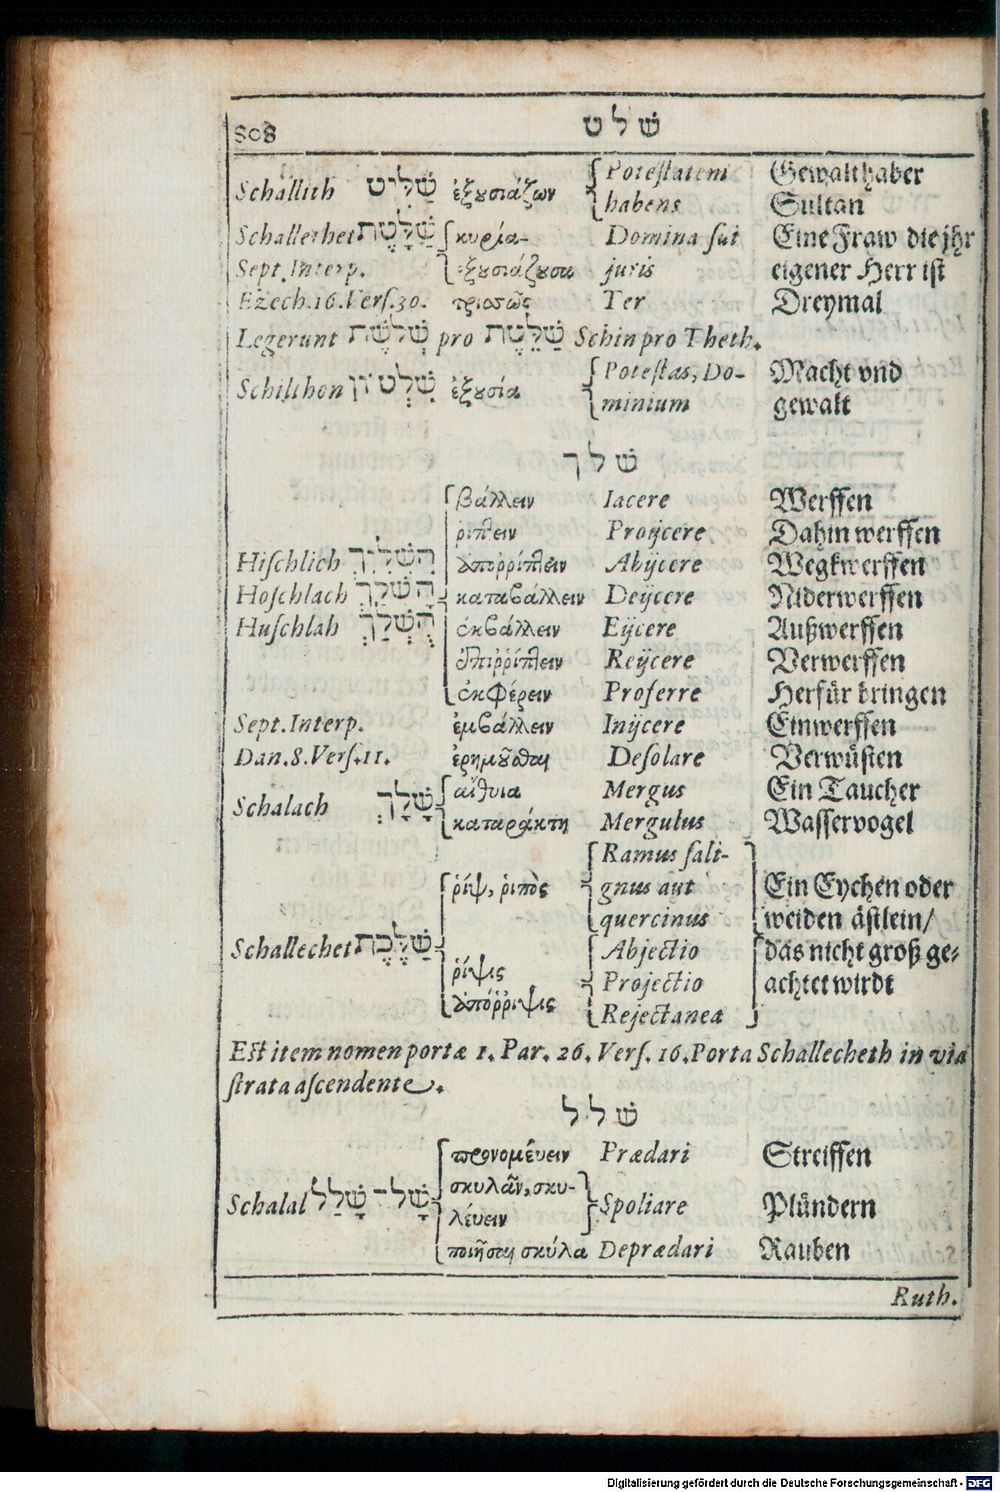 508 שׁלט
Schallith שַׁלִּיט ἐξουσιάζων Potestatem Gewalthaber
habens Sultan
Schallethet שַׁלֶּטֶת κυρία- Domina sui Eine Fraw die jhr
Sept. Interp. ἐξουσιάζουσα juris eigener Herr ist
Ezech. 16. Vers. 30. τρισσῶς Ter Dreymal
Legerunt שְׁלֹשֶׁת pro שַׁלֶּטֶת Schin pro Theth.
Schilthon שִׁלְטוֹן ἐξουσία Potestas, Do- Macht vnd
minium gewalt
שׁלך
βάλλειν Iacere Werffen
ῥίπτειν Proijcere Dahin werffen
Hiſchlich הִשְׁלִיךְ ἀποῤῥίπτειν Abijcere Wegkwerffen
Hoſchlach הָשְׁלַךְ καταβάλλειν Deijcere Niderwerffen
Huſchlah הֻשְׁלַךְ ἐκβάλλειν Eijcere Außwerffen
ἐπιῤῥίπτειν Reijcere Verwerffen
ἐκφέρειν Proferre Herfür bringen
Sept. Interp. ἐμβάλλειν Inijcere Einwerffen
Dan. 8. Verſ. 11. ἐρημοῦσθαι Deſolare Verwüſten
Schalach שָׁלָךְ αἴθυια Mergus Ein Taucher
καταράκτη Mergulus Waſſervogel
Ramus ſali-
ῥίψ, ῥιπὸς gnus aut Ein Eychen oder
quercinus weiden äſtlein/
Schallechet שַׁלֶּכֶת Abjectio das nicht groß ge-
ῥίψις Projectio achtet wirdt
ἀπόῤῥιψις Rejectanea
Eſt item nomen portæ 1. Par. 26. Verſ. 16. Porta Schallecheth in via
ſtrata aſcendente.
שׁלל
προνομεύειν Prædari Streiffen
Schalal שָׁלַל־שָׁלַל σκυλᾶν, σκυ- Spoliare Plündern
λεύειν
ποιῆσαι σκύλα Deprædari Rauben
Ruth.
Digitalisierung gefördert durch die Deutsche Forschungsgemeinschaft - DFG